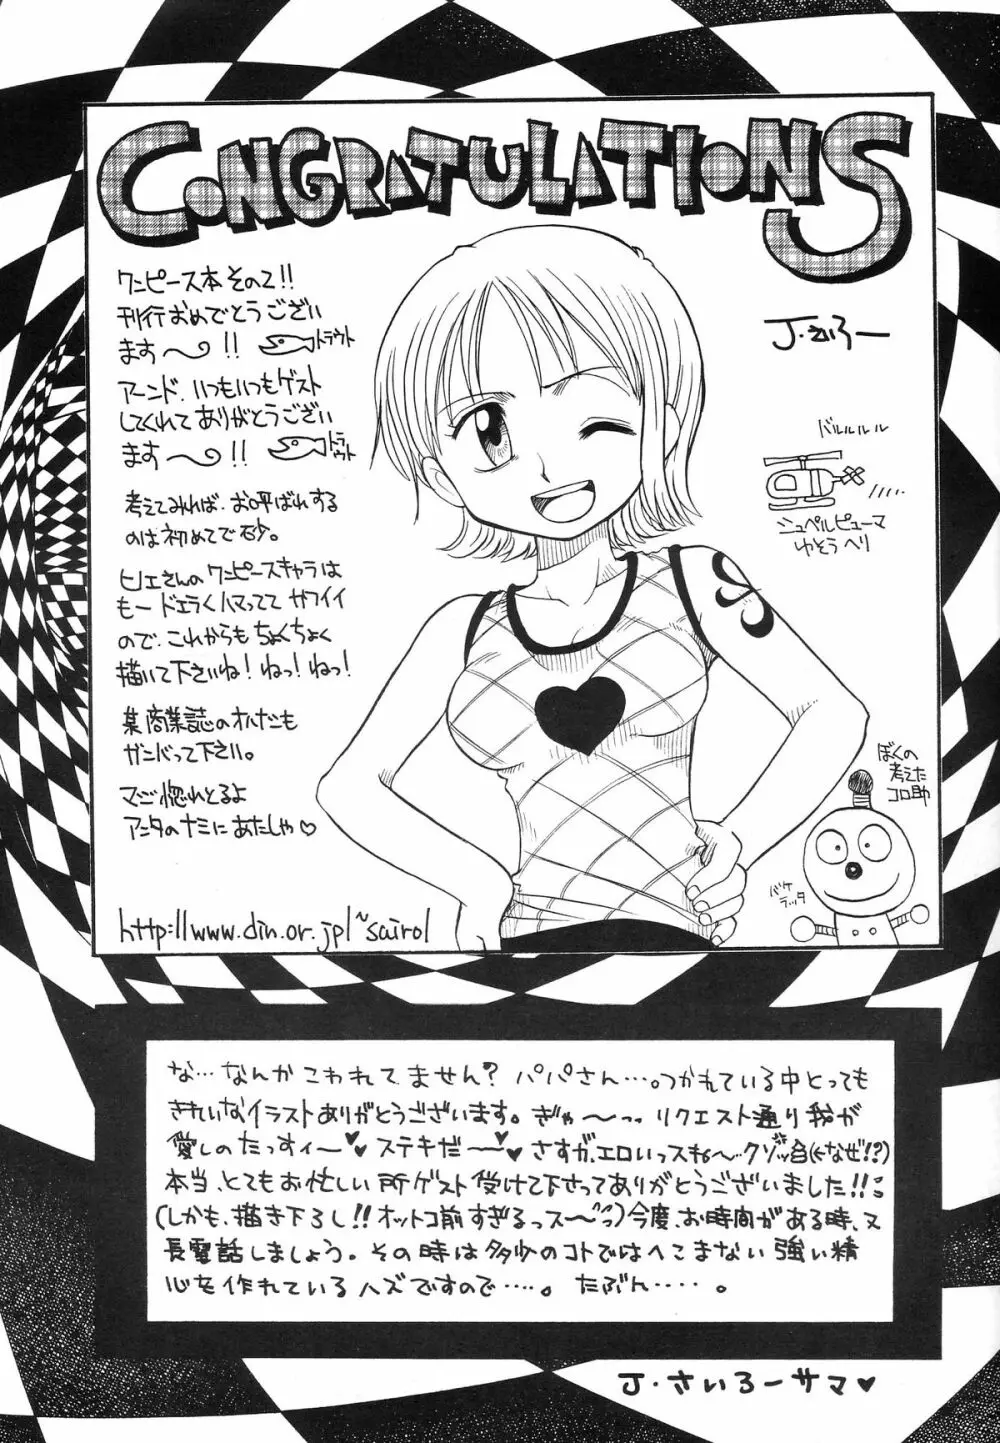 CONGRATULATIONS
ワンピース本その2!!
刊行おめでとうござい
ます〜!! トラウト
アーンド、いつもいつもゲスト
してくれてありがとうござい
ます〜!! トラウト
考えてみれば、お呼ばれする
のは初めてで砂。
ヒノエさんのワンピースキャラは
もードエラくハマってて カワイイ
ので、これからもちょくちょく
描いて下さいね!ねっ!ねっ!
集商業誌のオリジナルも
ガンバって下さい。
マジ惚れとるよ
アンタのナミにあたしゃ♡
http://www.din.or.jp/~sairo1
J・さいろー
バルルルル
シュペルピューマ
ゆそうヘリ
ぼくの
考えた
コロ助
バケ
ラッタ
な…なんかこわれてません?パパさん…。つかれている中とっても
きれいなイラストありがとうございます。ぎゃ〜っっ リクエスト通り我が
愛しのたっすぃー♥ステキだ〜♥さすが、エロいっスね〜…クゾッ(←なぜ!?)
本当、とてもお忙しい所ゲスト受けて下さってありがとうございました!!
(しかも、描き下ろし!!オットコ前すぎるっス〜っっ)今度、お時間がある時、又
長電話しましょう。その時は多少のコトではへこまない強い精
心を作れているハズですので……。たぶん……。
J・さいろーサマ♥